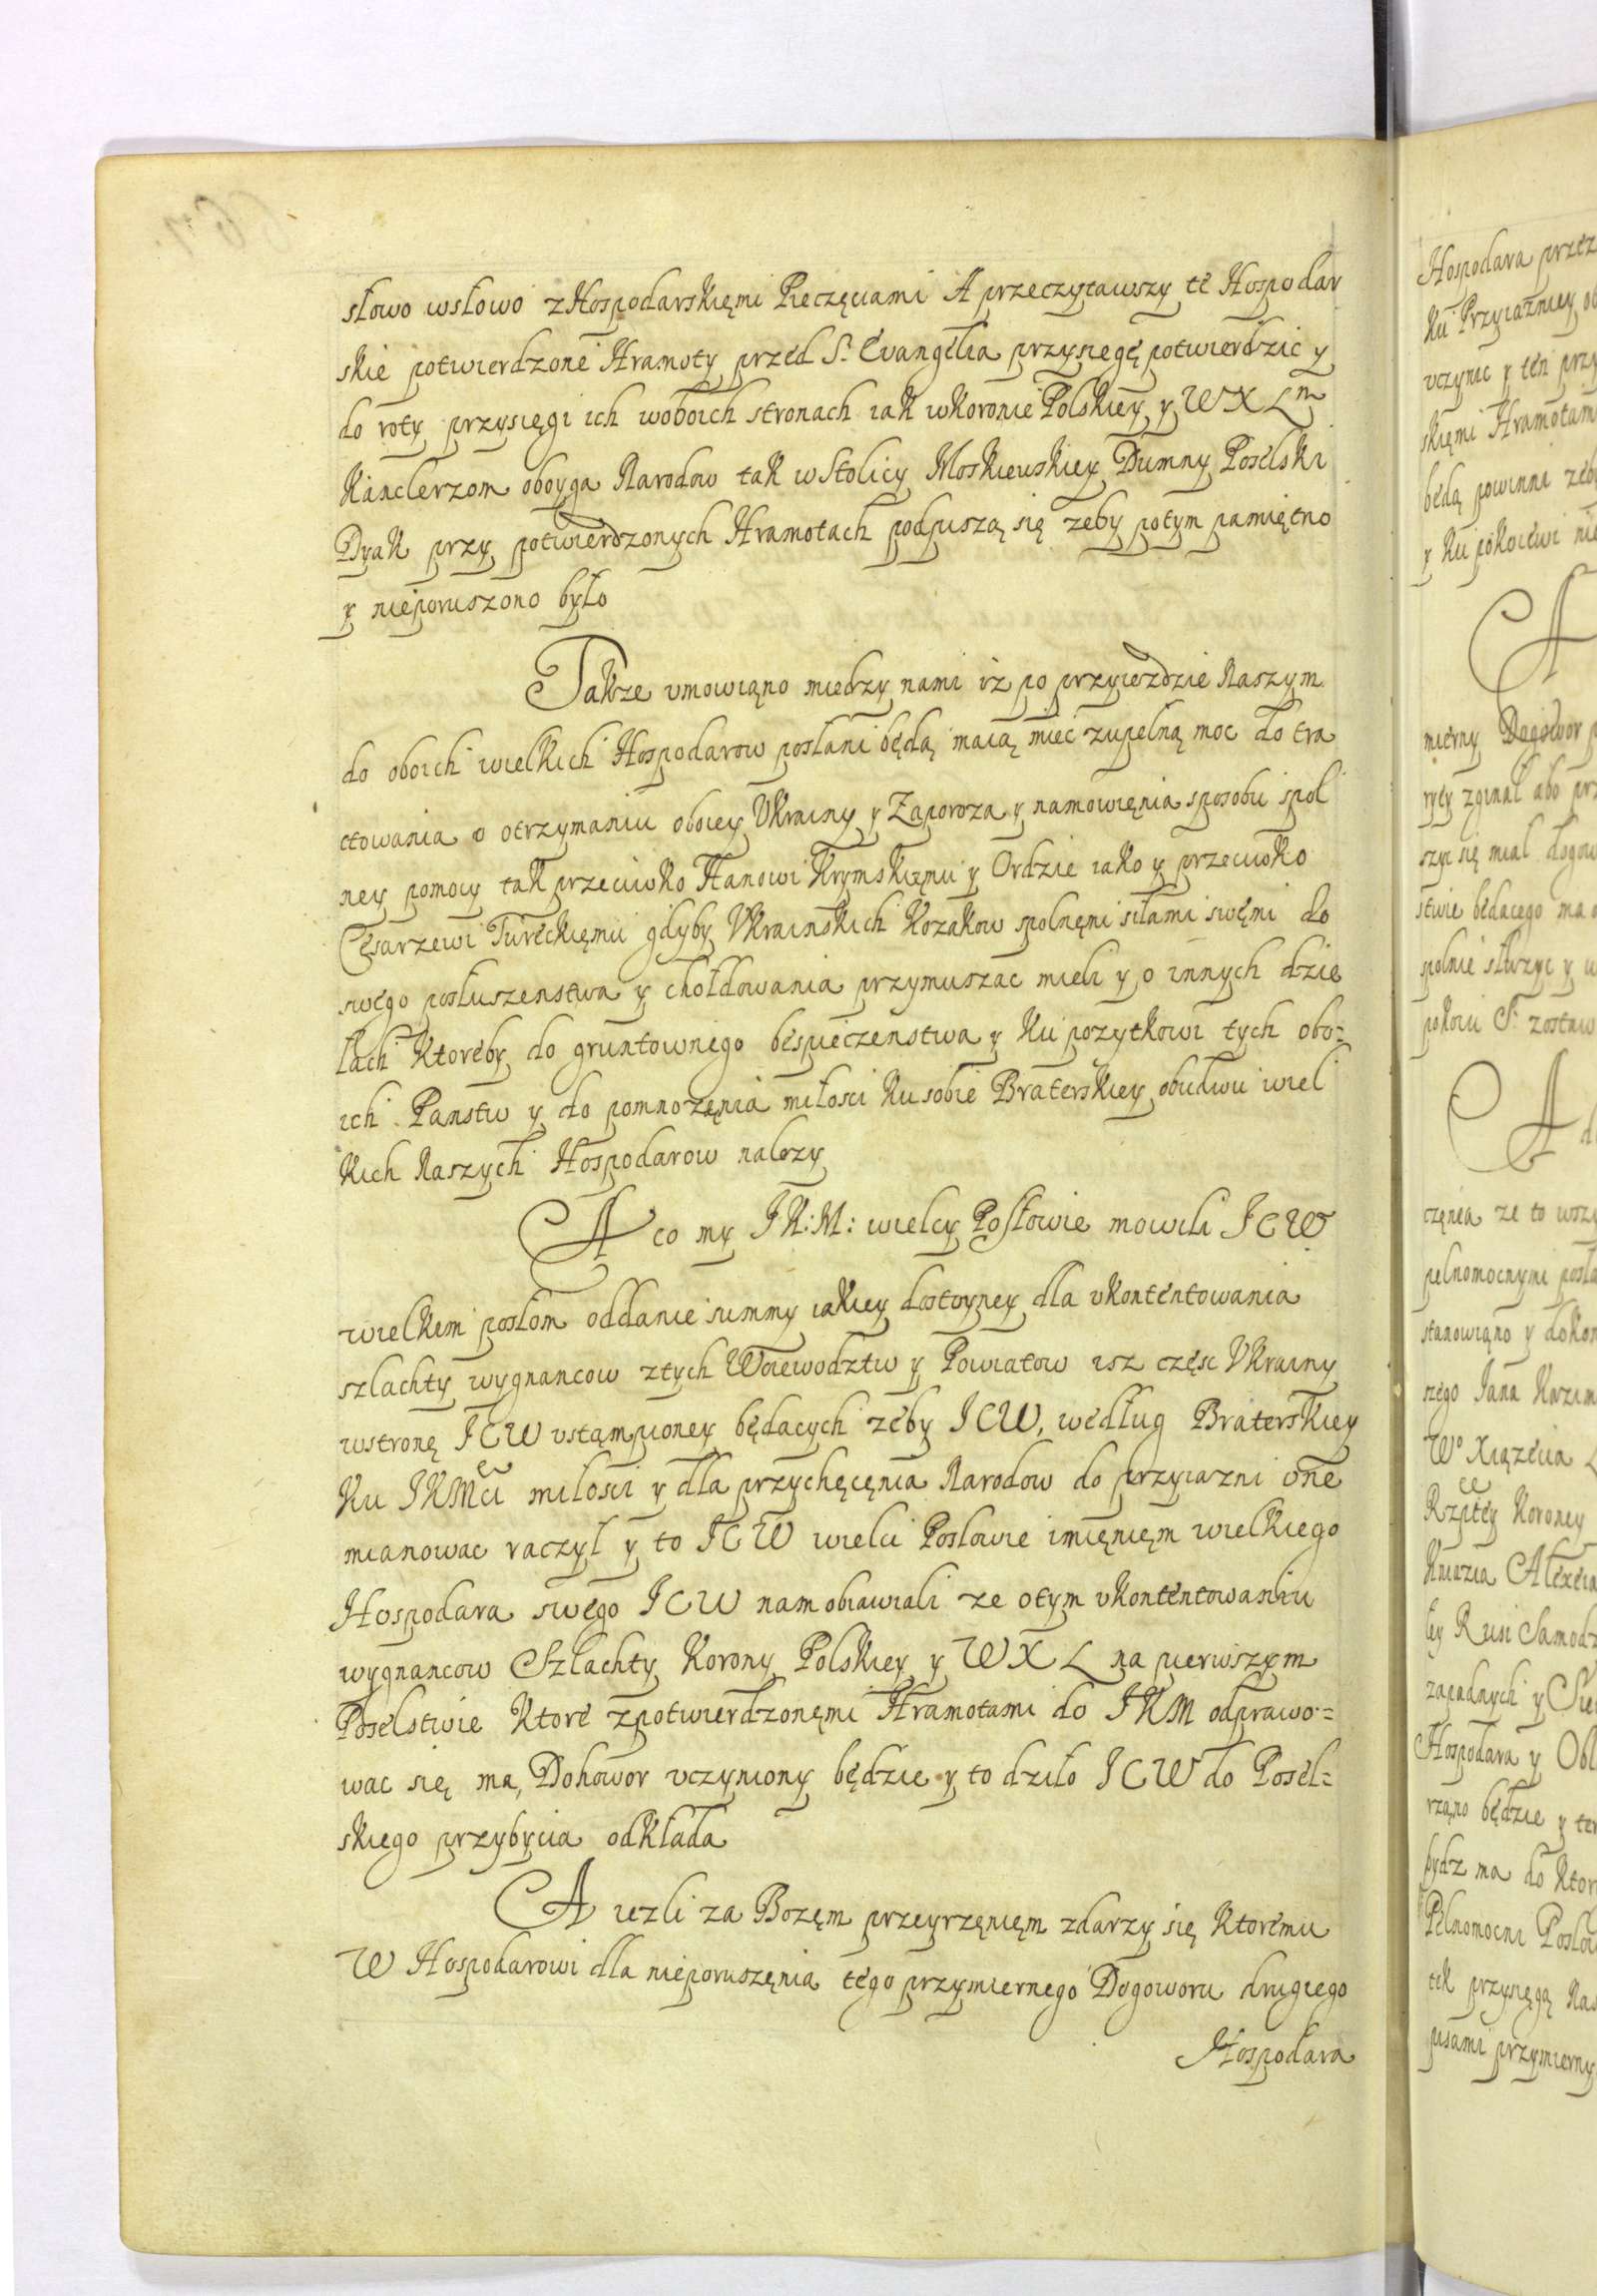 słowo wsłowo zHospodarskięmi Pieczęciami A przeczytawszy te Hospodar
skie potwierdzone Hramoty przed S. Evangelia przysięgę potwierdzic y
do roty przysięgi ich woboich stronach iak wkoronie Polskiey y WXLm
Kanclerzom oboyga Narodow tak wStolicy Moskiewskiey Dumny Poselski
Dyak przy potwierdzonych Hramotach podpuszą się zeby potym pamiętno
y nieporuszono było
Takze vmowiąno miedzy nami iz po przyiezdzie Naszym
do oboich wielkich Hospodarow posłani będą maią miec zupelną moc do tra
ctowania o otrzymaniu oboiey Vkrainy y Zaporoza y namowięnia sposobu spol
ney pomocy tak przeciwko Hanowi Krymskięmu y Ordzie iako y przeciwko
Cęsarzewi Tureckięmu gdyby Vkrainskich Kozakow spolnęmi siłami swęmi do
swego posłuszenstwa y chołdowania przymuszac mieli y o innych dzie
łach ktoreby do gruntownego bespieczenstwa y ku pozytkowi tych obo=
ich Panstw y do pomnozęnia miłosci ku sobie Braterskiey obudwu wiel
kich Naszych Hospodarow nalezy
A co my JK:M: wielcy Posłowie mowili JCW
wielkem posłom oddanie summy iakiey dostoyney dla vkontentowania
szlachty wygnancow ztych Woiewodztw y Powiatow isz częsc Vkrainy
wstronę JCW vstąmpioney będacych zeby JCW, według Braterskiey
Ku JKMci milosci y dla przychęcęnia Narodow do przyiazni one
mianowac raczyl y to JCW wielci Posłowie imięnięm wielkiego
Hospodara swego JCW nam obiawiali ze otym vkontentowaniu
wygnancow Szlachty Korony Polskiey y WXL na pierwszym
Poselstwie ktore zpotwierdzonęmi Hramotami do JKM odprawo=
wac się ma, Dohowor vczyniony będzie y to dziło JCW do Posel=
skiego przybycia odkłada
A iezli za Bozęm przeyrzęnięm zdarzy się ktoremu
W Hospodarowi dla nieporuszęnia tego przymiernego Dogoworu drugiego
Hospodara
Hospodara przez
ku Przyiazniey
vczynic y ten przy
skięmi Hramotam
będą powinni zeby
y ku pokoiewi nie
A
mierny Dogowor p
zginał abo prz
szyc się mial dogow
stwie będacego ma
spolnie słuzyc y w
pokoiu S. zostaw
A
częnia ze to wszy
pełnomocnymi posła
stanowiąno y dokon
szego Jana Kazim
Wo Xiązecia L
Rzptey Koroney
Kniazia Alexeia
łey Rusi Samodz
zapadnych y Sie
Hospodara y Obł
rząno będzie y ten
bydz ma do ktor
Pełnomocni Posłow
tek przysięgą Nas
pisami przymierny